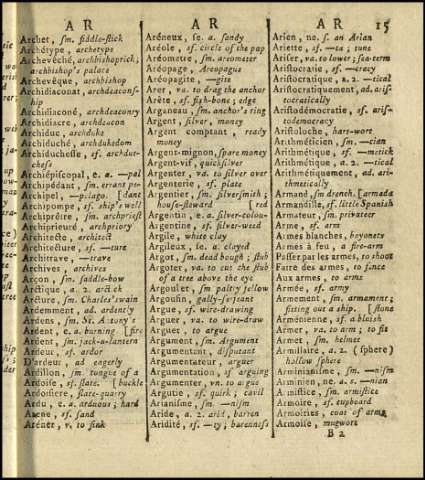 A R
A R
A R
15
Archet, sm. fiddle-stick
Archétype, archetype
Archevêché, archbishoprick;
archbishop's palace
Archevêque, archbishop
Archidiaconat, archdeacons-
hip
Archidiaconé, archdeaconry
Archidiacre, archdeacon
Archiduc, archduke
Archiduché, archdukedom
Archiduchesse, sf. archdut-
chess
Archiépiscopal, e. a. —pal
Archipédant, sm. errant pe-
Archipel, —pelago. [dant
Archipompe, sf. ship's well
Archiprêtre, sm. archpriest
Archiprieuré, archpriory
Architecte, architect
Architecture, sf. —ture
Architrave, —trave
Archives, archives
Arçon, sm. saddle-bow
Arctique, a. 2. arctick
Arcture, sm. Charles's wain
Ardemment, ad. ardently
Ardens, sm. St. Antony's
Ardent, e. a. burning [fire
Ardent, sm. jack-a-lantern
Ardeur, sf. ardor
D'ardeur, ad. eagerly
Ardillon, sm. tongue of a
Ardoise, sf. slate. [buckle
Ardoisiere, slate-quarry
Ardu, e. a. arduous; hard
Arene, sf. sand
Aréner, v. to sink
Aréneux, se. a. sandy
Aréole, sf. circle of the pap
Aréometre, sm. areometer
Aréopage, Areopagus
Aréopagite, —gite
Arer, va. to drag the anchor
Arête, sf. fish-bone; edge
Arganeau, sm. anchor's ring
Argent, silver, money
Argent comptant, ready
money
Argent-mignon, spare money
Argent-vif, quicksilver
Argenter, va. to silver over
Argenterie, sf. plate
Argentier, sm. silversmith;
house-steward [red
Argentin, e. a. silver-colou-
Argentine, sf. silver-weed
Argile, white clay
Argileux, se. a. clayed
Argot, sm. dead bough; stub
Argoter, va. to cut the stub
of a tree above the eye
Argoulet, sm. paltry fellow
Argousin, gally-serjeant
Argue, sf. wire-drawing
Arguer, va. to wire-draw
Arguer, to argue
Argument, sm. Argument
Argumentant, disputant
Argumentateur, arguer
Argumentation, sf. arguing
Argumenter, vn. to argue
Argutie, sf. quirk; cavil
Arianisme, sm. —nism
Aride, a. 2. arid, barren
Aridité, sf. —ty; barenness
Arien, ne. s. an Arian
Ariette, sf. —ta; tune
Ariser, va. to lower; sea-term
Aristocratie, sf. —cracy
Aristocratique, a. 2. —tical
Aristocratiquement, ad. aris-
tocratically
Aristodémocratie, sf. aris-
todemocracy
Aristoloche, hart-wort
Arithméticien, sm. —cian
Arithmétique, sf. —metick
Arithmétique, a. 2. —tical
Arithmétiquement, ad. ari-
thmetically
Armand, sm. drench. [armada
Armandille, sf. little Spanish
Armateur, sm. privateer
Arme, sf. arm
Armes blanches, bayonets
Armes à feu, a fire-arm
Passer par les armes, to shoot
Faire des armes, to fence
Aux armes, to arms
Armée, sf. army
Armement, sm. armament;
fitting out a ship. [stone
Arménienne, sf. a blcish
Armer, va. to arm; to fit
Armet, sm. helmet
Armillaire, a. 2. (sphere)
hollow sphere
Arminianisme, sm. —nism
Arminien, ne. a. s. —nian
Armistice, sm. armistice
Armoire, sf. cupboard
Armoiries, coat of arms
Armoise, mugwort
B 2